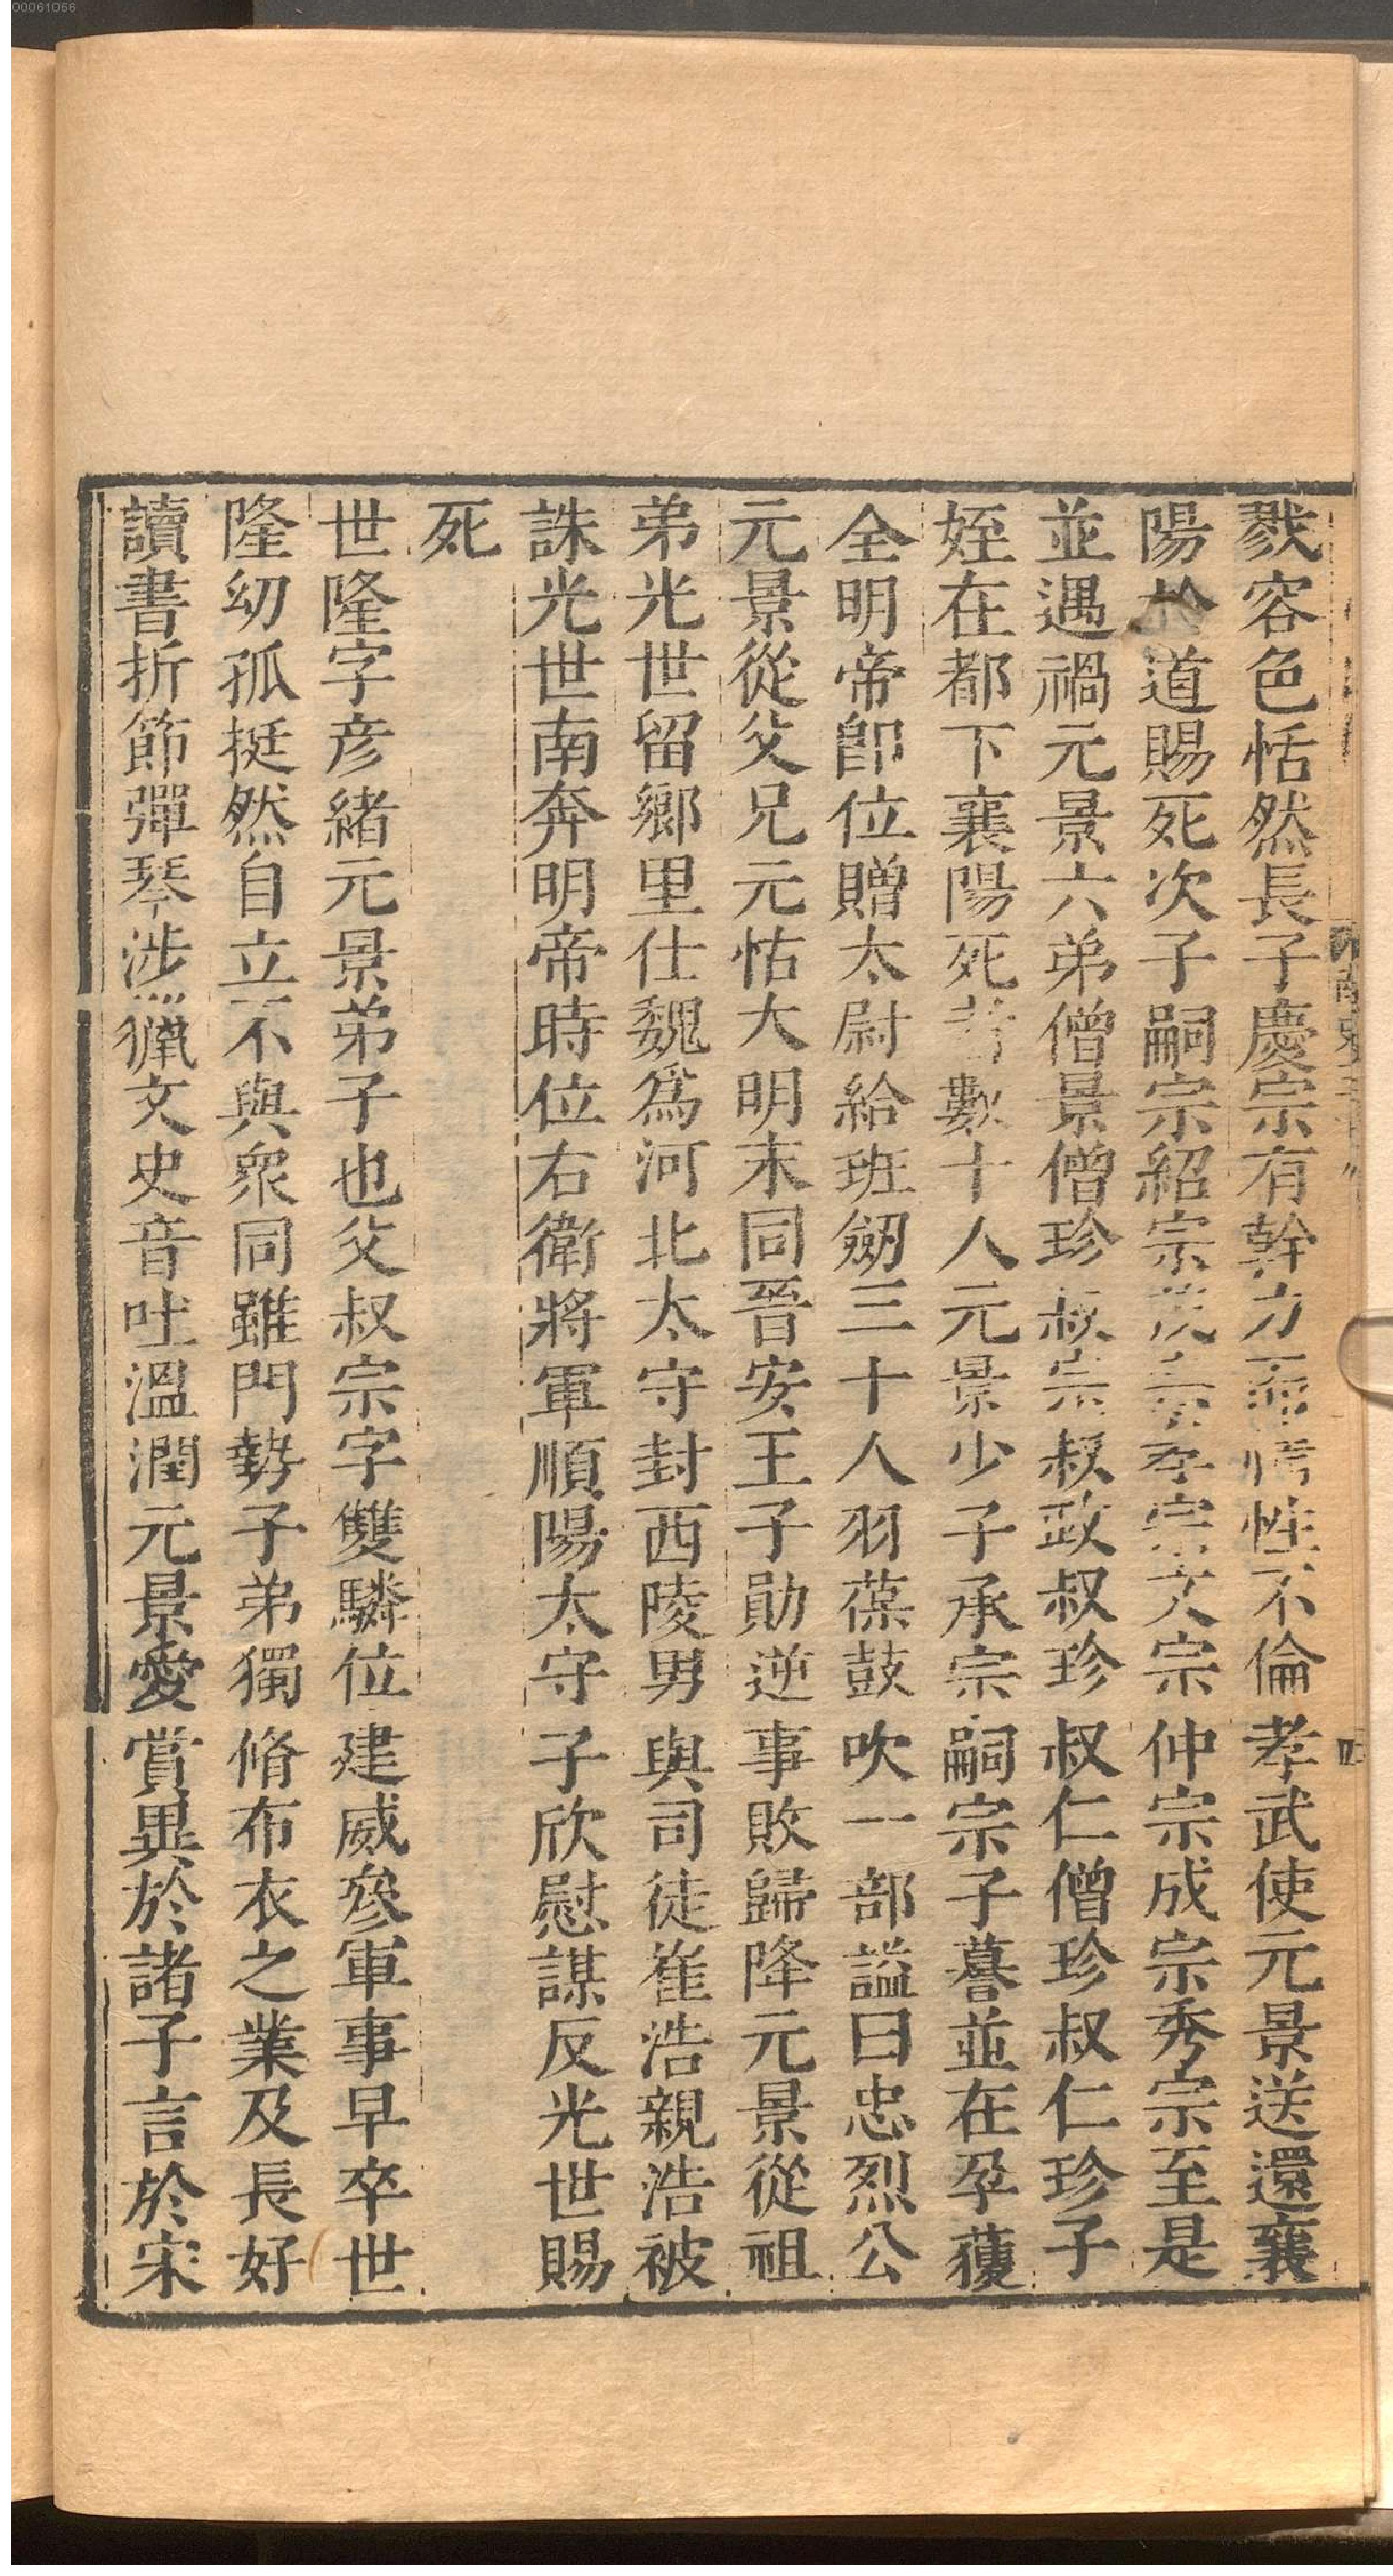 00061066
戮容色恬然長子慶宗有幹力而情性不倫孝武使元景送還襄
陽於道賜死次子嗣宗紹宗茂宗孝宗文宗仲宗成宗秀宗至是
並遇禍元景六弟僧景僧珍叔宗叔政叔珍叔仁僧珍叔仁珍子
姪在都下襄陽死者數十人元景少子承宗嗣宗子蕃並在孕獲
全明帝卽位贈太尉給班劒三十人羽葆鼓吹一部謚曰忠烈公
元景從父兄元怙大明末同晉安王子勛逆事敗歸降元景從祖
弟光世留鄉里仕魏爲河北太守封西陵男與司徒崔浩親浩被
誅光世南奔明帝時位右衛將軍順陽太守子欣慰謀反光世賜
死
世隆字彦緒元景弟子也父叔宗字雙驎位建威參軍事早卒世
隆幼孤挺然自立不與衆同雖門勢子弟獨脩布衣之業及長好
讀書折節彈琴涉獵文史音吐溫潤元景愛賞異於諸子言於宋